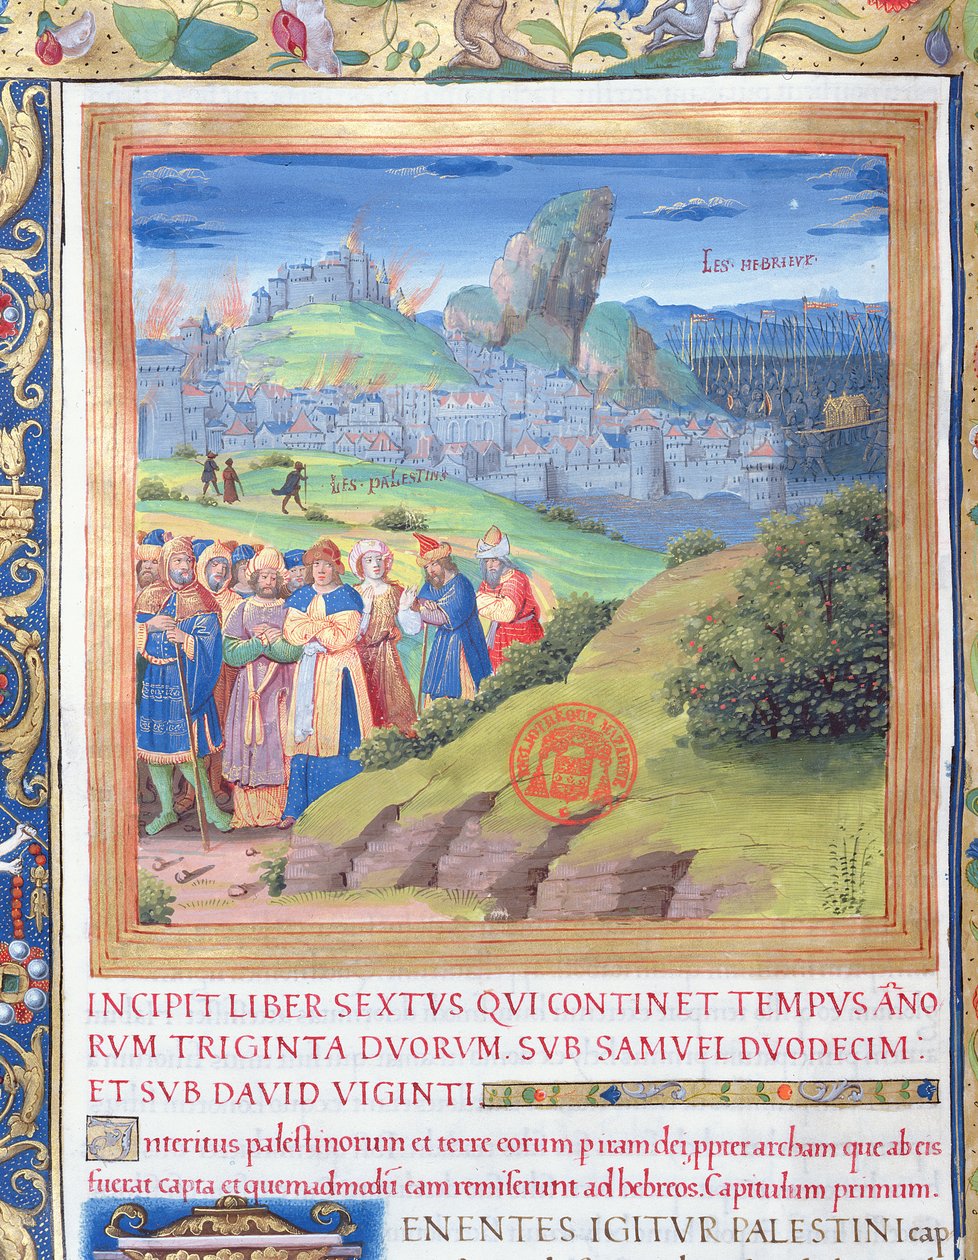 LES · HEBRIEVX ·
LES · PALESTINS
BIBLIOTHÈQUE MAZARINE
INCIPIT LIBER SEXTVS QVI CONTINET TEMPVS ÃNO
RVM TRIGINTA DVORVM. SVB SAMVEL DVODECIM :
ET SVB DAVID VIGINTI.
Interitus palestinorum et terre eorum p iram dei, ppter archam que ab eis
fuerat capta et quemadmodũ eam remiserunt ad hebreos. Capitulum primum.
ENENTES IGITVR PALESTINI cap